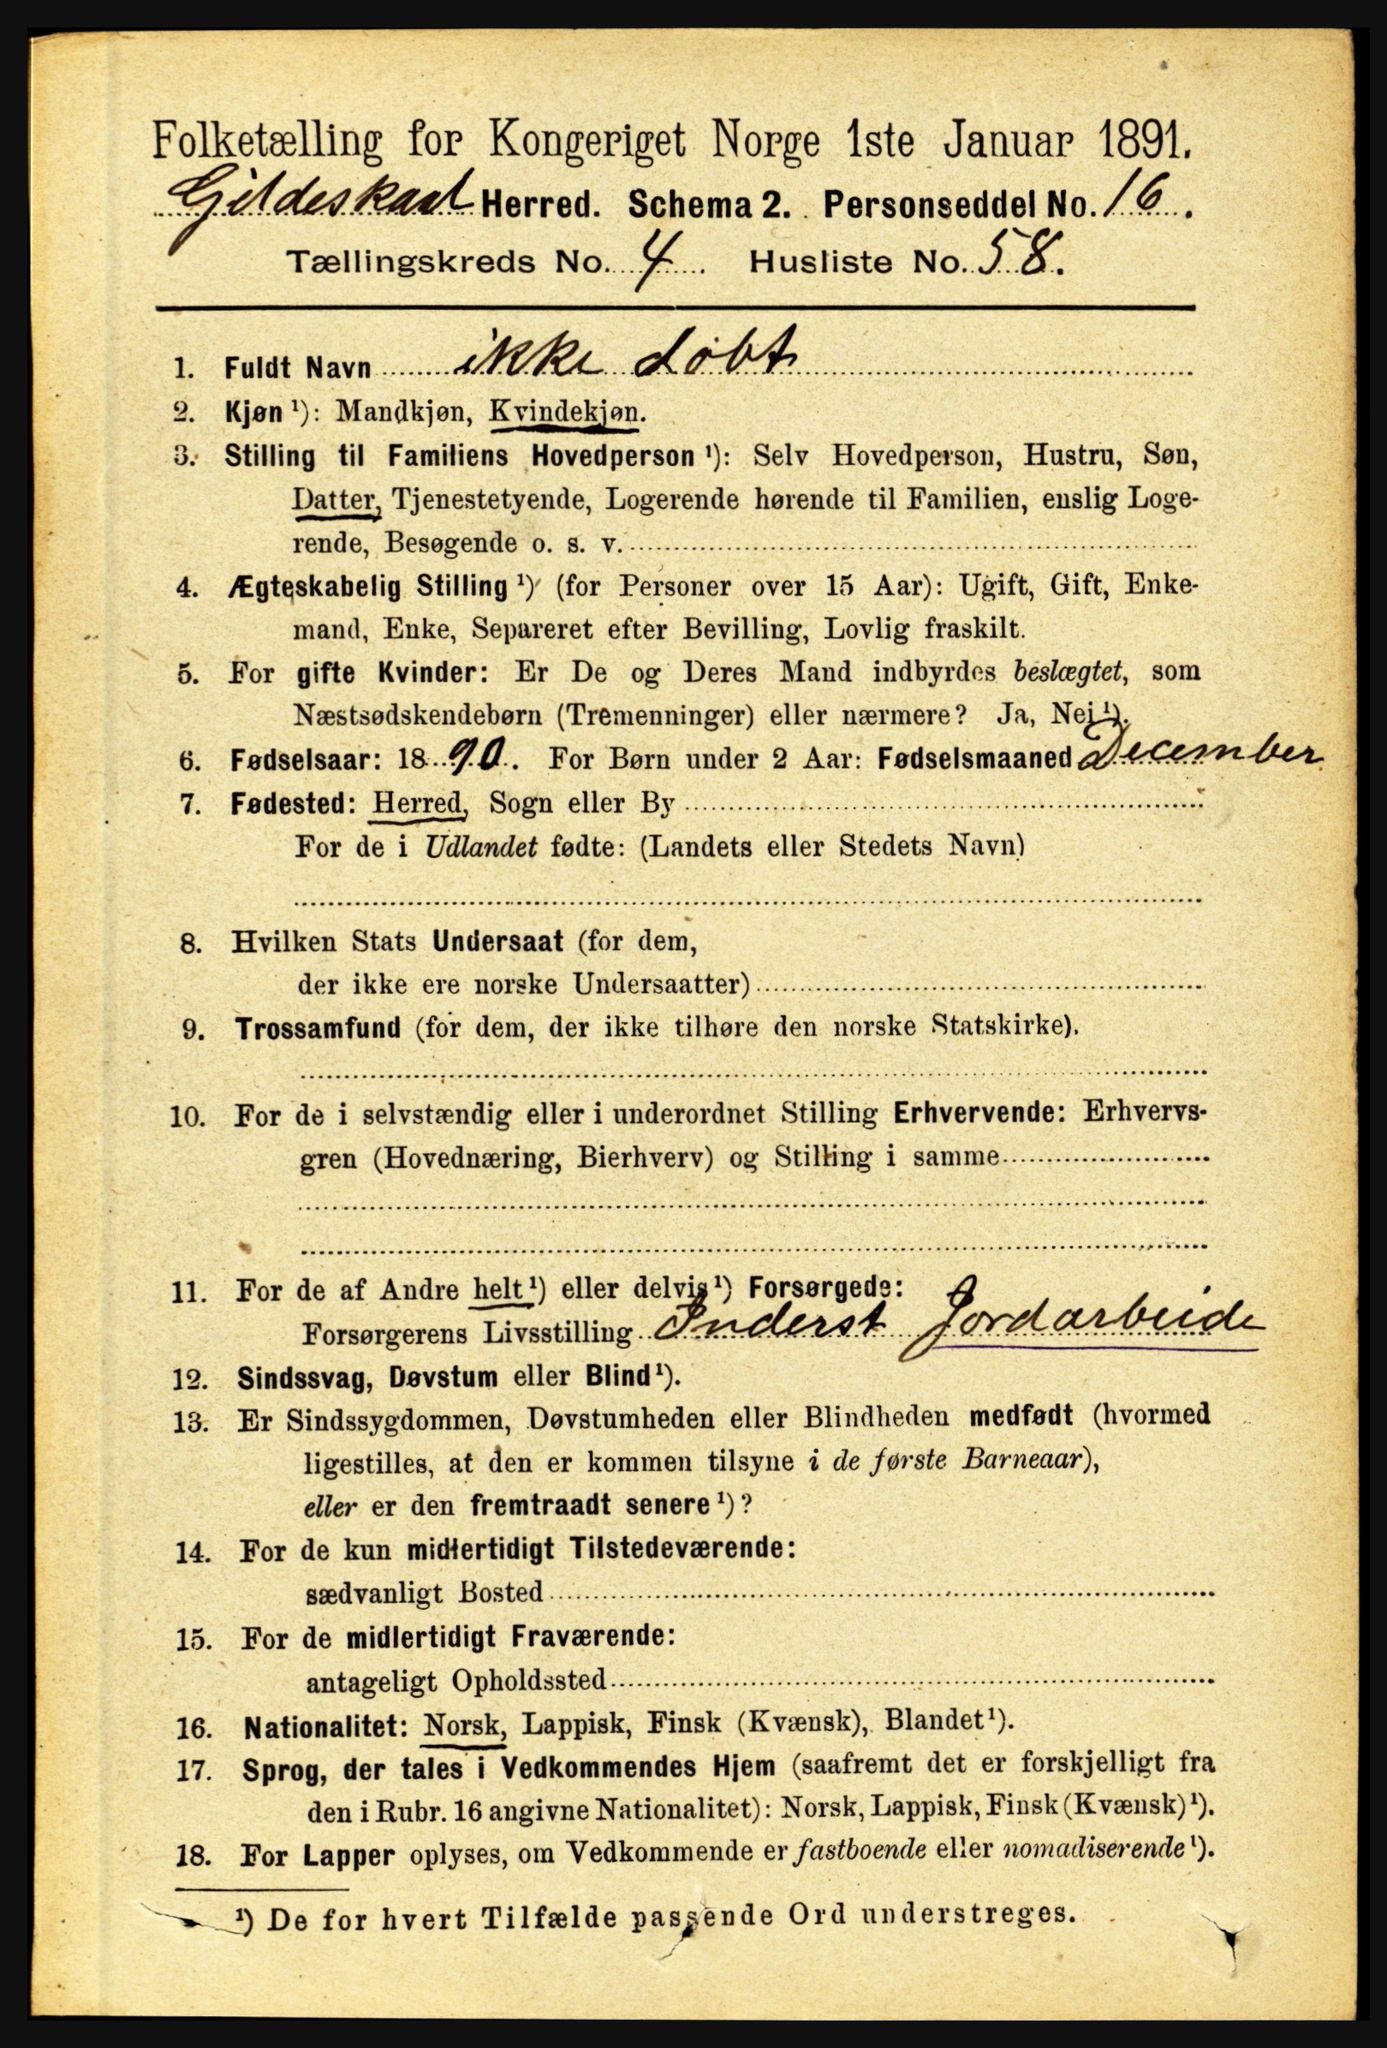 Folketælling for Kongeriget Norge 1ste Januar 1891.
Gildeskaal Herred. Schema 2. Personseddel No. 16.
Tællingskreds No. 4. Husliste No. 58.
1. Fuldt Navn ikke døbt
2. Kjøn ¹): Mandkjøn, Kvindekjøn.
3. Stilling til Familiens Hovedperson ¹): Selv Hovedperson, Hustru, Søn,
Datter, Tjenestetyende, Logerende hørende til Familien, enslig Loge-
rende, Besøgende o. s. v.
4. Ægteskabelig Stilling ¹) (for Personer over 15 Aar): Ugift, Gift, Enke-
mand, Enke, Separeret efter Bevilling, Lovlig fraskilt.
5. For gifte Kvinder: Er De og Deres Mand indbyrdes beslægtet, som
Næstsødskendebørn (Tremenninger) eller nærmere? Ja, Nei ¹).
6. Fødselsaar: 1890. For Børn under 2 Aar: Fødselsmaaned December
7. Fødested: Herred, Sogn eller By
For de i Udlandet fødte: (Landets eller Stedets Navn)
8. Hvilken Stats Undersaat (for dem,
der ikke ere norske Undersaatter)
9. Trossamfund (for dem, der ikke tilhøre den norske Statskirke).
10. For de i selvstændig eller i underordnet Stilling Erhvervende: Erhvervs-
gren (Hovednæring, Bierhverv) og Stilling i samme
11. For de af Andre helt ¹) eller delvis ¹) Forsørgede:
Forsørgerens Livsstilling Inderst Jordarbeide
12. Sindssvag, Døvstum eller Blind ¹).
13. Er Sindssygdommen, Døvstumheden eller Blindheden medfødt (hvormed
ligestilles, at den er kommen tilsyne i de første Barneaar),
eller er den fremtraadt senere ¹)?
14. For de kun midlertidigt Tilstedeværende:
sædvanligt Bosted
15. For de midlertidigt Fraværende:
antageligt Opholdssted
16. Nationalitet: Norsk, Lappisk, Finsk (Kvænsk), Blandet ¹).
17. Sprog, der tales i Vedkommendes Hjem (saafremt det er forskjelligt fra
den i Rubr. 16 angivne Nationalitet): Norsk, Lappisk, Finsk (Kvænsk) ¹).
18. For Lapper oplyses, om Vedkommende er fastboende eller nomadiserende ¹).
¹) De for hvert Tilfælde passende Ord understreges.